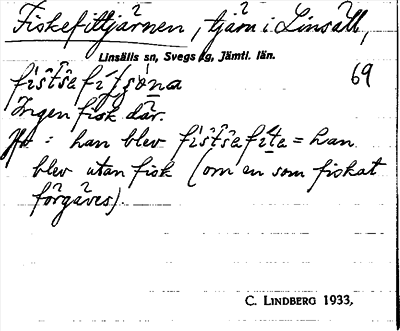 Fiskefittjärnen, tjärn i Linsäll,
Linsälls sn, Svegs tg, Jämtl. län.
69
Ingen fisk där.
: han blev = han
blev utan fisk (om en som fiskat
förgäves).
C. LINDBERG 1933,